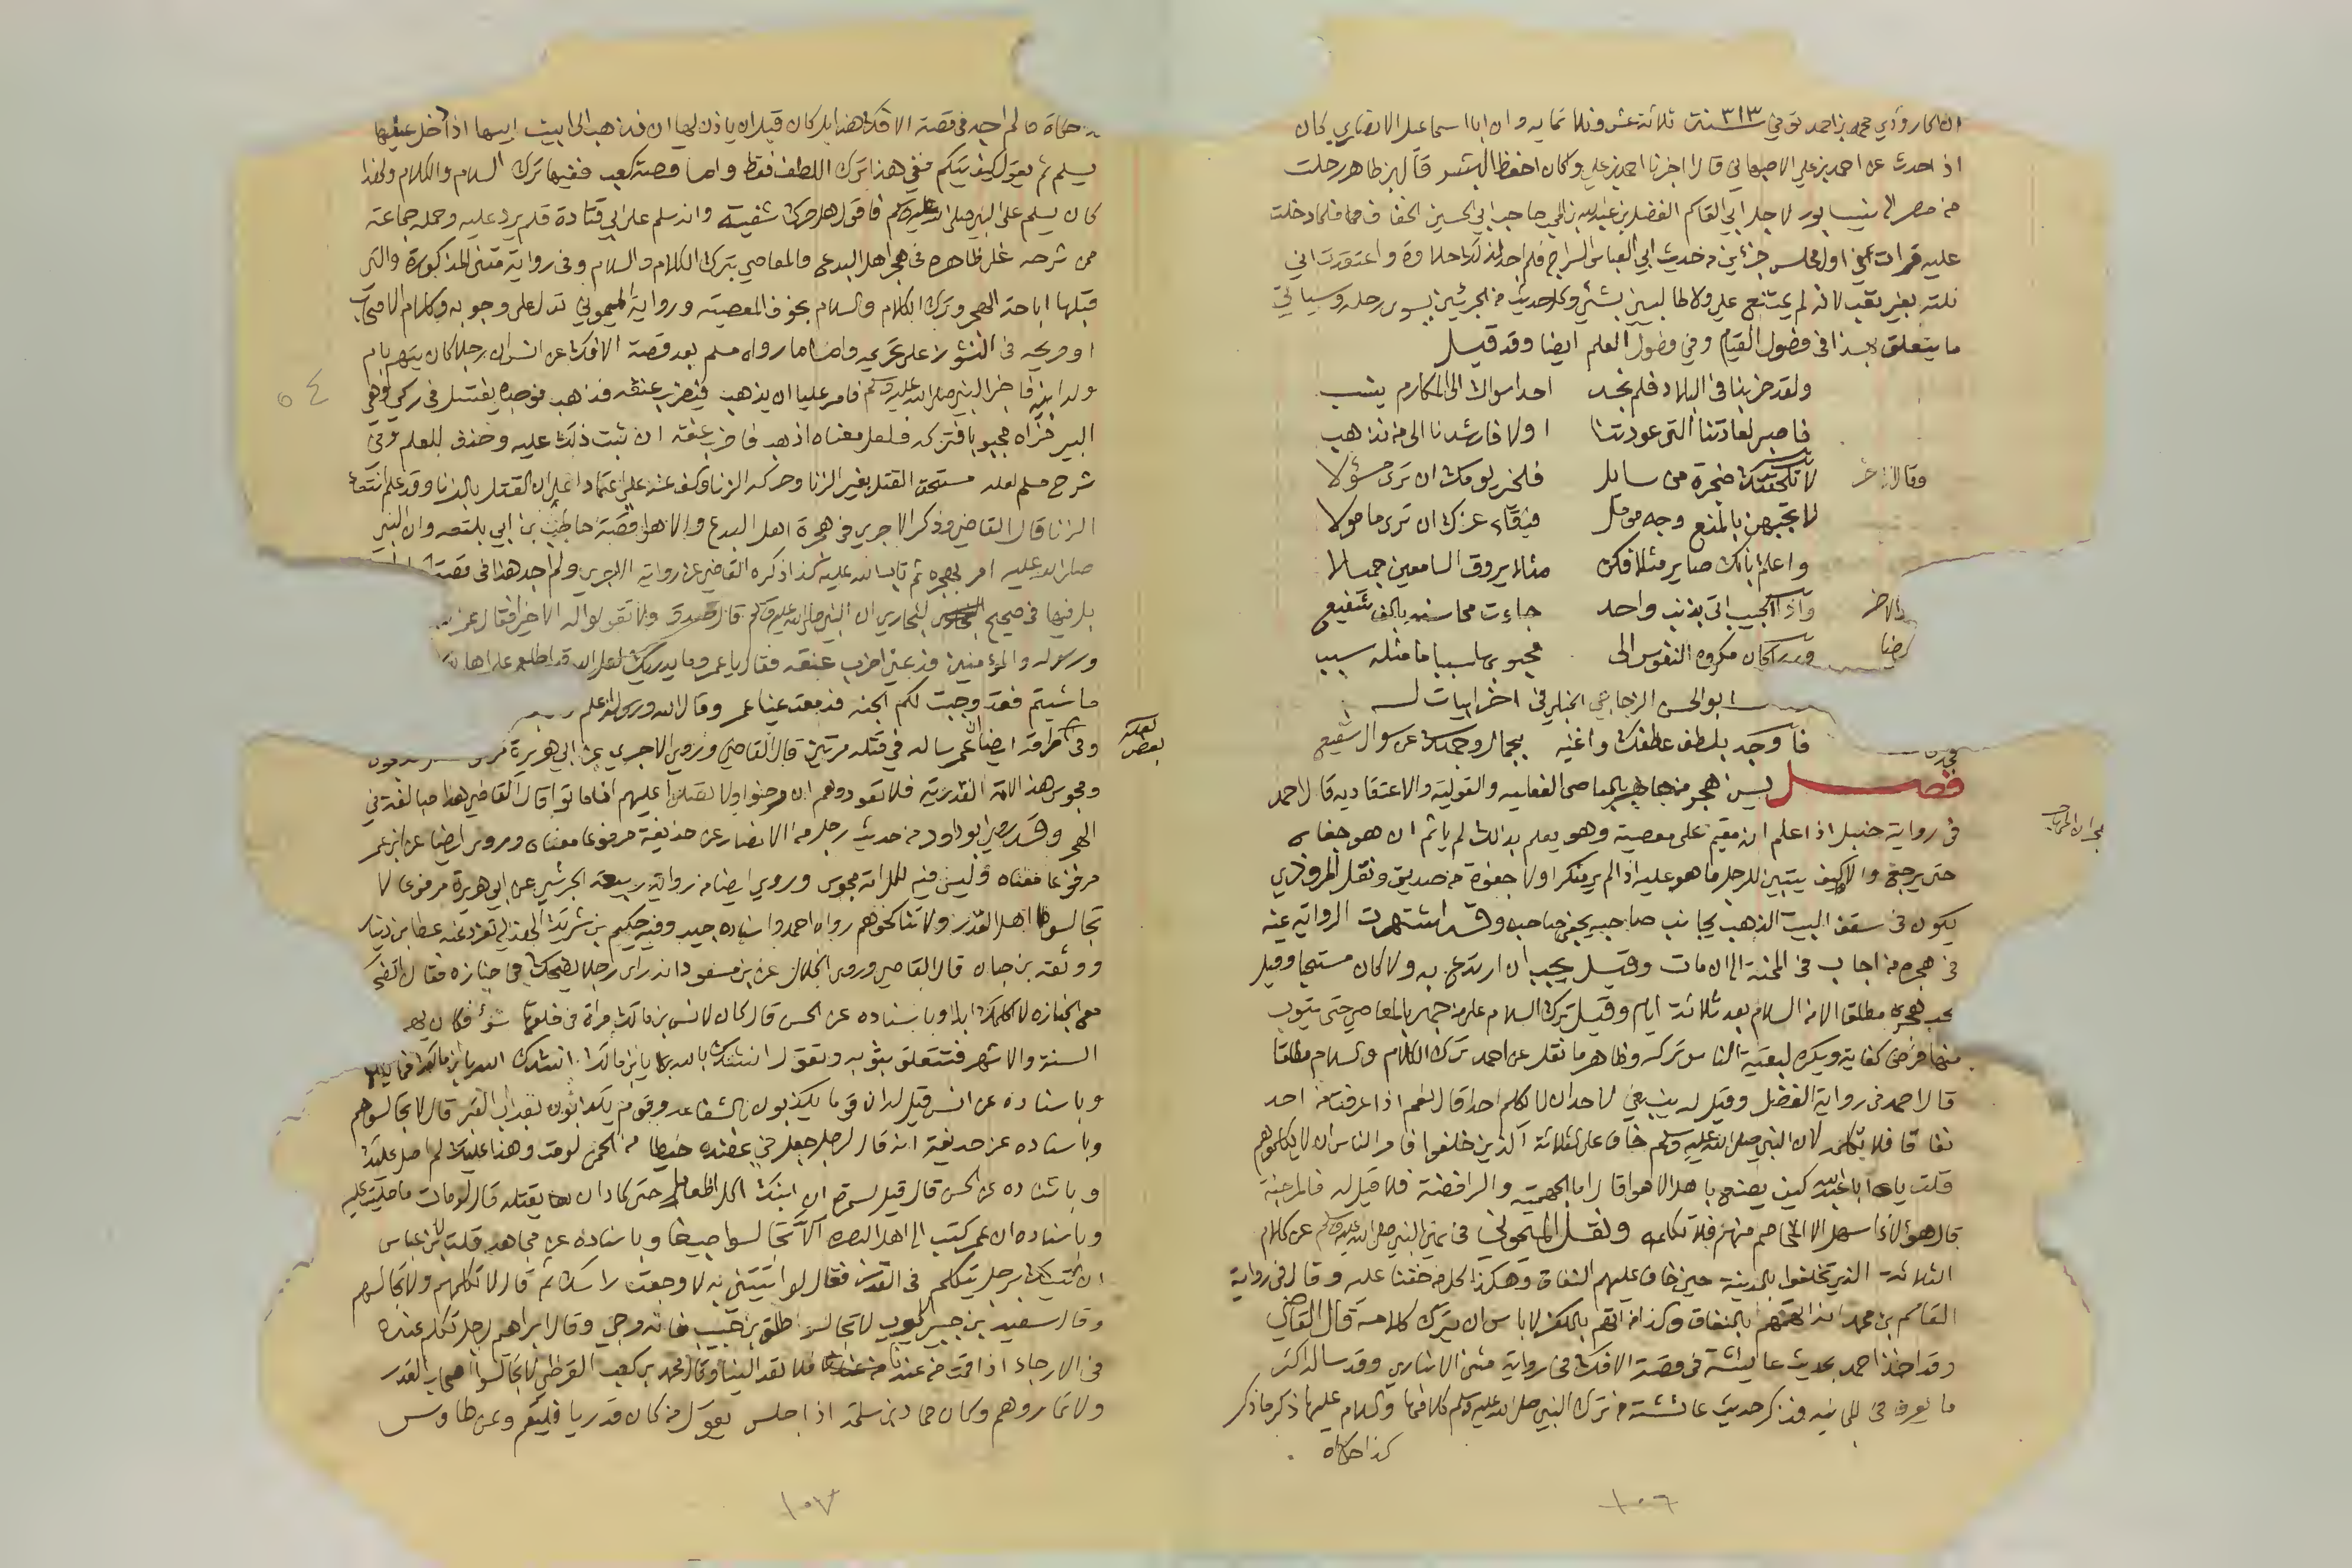 ان الماروذي محمد بن احمد توفي ٣١٣ سنة ثلاثة عشر وثلاثمايه وان ابا اسماعيل الانصاري كان
اذ احدث عن احمد بن علي الاصبهاني قال اخبرنا احمد بن علي وكان احفظ البشر قال ابن طاهر رحلت
من مصر الى نيسابور لاجل ابي القاسم الفضل بن عبدالله بن المحب صاحب ابي الحسين الخفاف فلما دخلت
عليه قرات في اول مجلس جزئين من حديث ابي العباس السراج فلم اجد لذلك حلاوة واعتقدت اني
نلته بغير تعب لانه لم يمتنع علي ولا طالبني بشئ وكل حديث من الجزئين يسوى رحله وسياتي
ما يتعلق بهذا في فضول القيام وفي فضول العلم ايضا وقد قيل
ولقد ضربنا في البلاد فلم نجد احدا سواك الى المكارم ينسب
فاصبر لعادتنا التي عودتنا اولا فارشدنا الى من نذهب
وقال اخر لا تلحقنك ضجرة من سايل فلخير يومك ان ترى مسؤلا
لا تجبهن بالمنع وجه مومل فبقاء عزك ان ترى مامولا
واعلم بانك صاير مثلا فكن مثلا يروق السامعين جميلا
والاخر واذا الحبيب اتى بذنب واحد جاءت محاسنه بالف شفيع
ايضا كان مكروه النفوس الى محبوبها سببا ما مثله سبب
ابو الحسن الزجاجي الحنبلي في اخر ابيات له
فا وجد بلطف عطفك واغنه بجمال وجهك عن سوال شفيع
فصل يسن هجر من جاهر بالمعاصي الفعليه والقولية والاعتقاديه قال احمد
في رواية حنبل اذا علم انه مقيم على معصية وهو يعلم بذلك لم ياثم ان هو جفاه
حتى يرجع والا كيف يتبين للرجل ما هو عليه اذا لم ير منكرا ولا جفوة من صديق ونقل المروذي
يكون في سقف البيت الذهب يجانب صاحبه يجفى صاحبه وقد اشتهرت الرواية عنه
في هجره من اجاب في المحنة الى ان مات وقيل يجب ان ارتدع به والا كان مستحبا وقيل
يجب هجره مطلقا الا من السلام بعد ثلاثة ايام وقيل ترك السلام على من جهر بالمعاصي حتى يتوب
منها فرض كفاية ويكره لبقية الناس تركه وظاهر ما نقل عن احمد ترك الكلام والسلام مطلقا
قال احمد في رواية الفضل وقيل له ينبغي لاحد ان لا يكلم احدا قال نعم اذا عرفت من احد
نفاقا فلا تكلمه لان النبي صلى الله عليه وسلم خاف على الثلاثة الذين خلفوا فامر الناس ان لا يكلموهم
قلت يا ابا عبدالله كيف يصنع باهل الاهوا قال اما الجهمية والرافضة فلا قيل له فالمرجئة
قال هؤلاء اسهل الا المخاصم منهم فلا تكلمه ونقل الميموني في نهي النبي صلى الله عليه وسلم عن كلام
الثلاثة الذين تخلفوا بالمدينة حين خاف عليهم النفاق وهكذا كل من خفنا عليه وقال في رواية
القاسم بن محمد انه اتهمهم بالنفاق وكذا من اتهم بالكفر لا باس ان يترك كلامه قال القاضي
وقد اخذ احمد بحديث عايشة في قصة الافك في رواية مثنى الانباري وقد ساله اكثر
ما يعرف في المجانبه فذكر حديث عائشة من ترك النبي صلى الله عليه وسلم كلامها والسلام عليها ذكر ما ذكر
كذا حكاه
١٠٦
حكاه ما لم اجد في قصة الافك هذا بل كان قبل ان ياذن لها ان فذهب الى ابيت ابيها اذا دخل عليها
يسلم ثم يقول كيف تيكم ففي هذا ترك اللطف فقط واما قصة كعب ففيها ترك السلام والكلام ولهذا
كان يسلم على النبي صلى الله عليه وسلم فاقول هل حرك شفتيه وانه سلم على ابي قتادة فلم يرد عليه وحمله جماعة
من شرحه على ظاهره في هجر اهل البدع والمعاصي بترك الكلام والسلام وفي رواية مثنى المذكورة والتي
قبلها اباحة الهجر وترك الكلام والسلام بخوف المعصية ورواية الميموني تدل على وجوبه وكلام الاصحاب
او صريحه في النشوز على تحريمه واما ما رواه مسلم بعد قصة الافك عن انس ان رجلا كان يتهم بام
ولد ابنه فاخبر النبي صلى الله عليه وسلم فامر عليا ان يذهب فيضرب عنقه فذهب فوجده يغتسل في ركي وهي
البير فراه مجبوبا فتركه فلعل معناه اذهب فاضرب عنقه ان ثبت ذلك عليه وحذف للعلم وفي
شرح مسلم لعله مستحق القتل بغير الزنا وحركه الزنا وكف عنه علي اعتمادا على ان القتل بالزنا وقد علم انتفاء
الزنا قال القاضي وذكر الاجري في هجرة اهل البدع والاهوا قصة حاطب بن ابي بلتعه وان النبي
صلى الله عليه امر بهجره ثم تاب الله عليه كذا ذكره القاضي عن رواية الاجري ولم اجد هذا في قصة
بل فيها في صحيح البخاري ان النبي صلى الله عليه وسلم قال صدق ولا تقولوا له الا خيرا فقال عمر
ورسوله والمؤمنين فدعني اضرب عنقه فقال يا عمر وما يدريك لعل الله قد اطلع على اهل
ما شيتم فقد وجبت لكم الجنه فدمعت عينا عمر وقال الله ورسوله اعلم
وفي طرقه ايضا ان عمر ساله في قتله مرتين قال القاضي وروى الاجري عن ابي هريرة
ومجوس هذه الامة القدرية فلا تعودوهم ان مرضوا ولا تصلوا عليهم اذا ماتوا قال القاضي هذا مبالغة في
الهجر وقد روى ابو داود من حديث رجل من الانصار عن حذيفة مرفوعا معناه وروي ايضا عن ابن عمر
مرفوعا معناه وليس فيه لكل امة مجوس وروي ايضا من رواية ربيعة الجرشي عن ابي هريرة مرفوعا لا
تجالسوا اهل القدر ولا تناكحوهم رواه احمد واسناده جيد وفيه حكيم بن شريك الهذلي تفرد عنه عطا بن دينار
ووثقه بن حبان قال القاضي وروى الخلال عن بن مسعود انه راى رجلا يضحك في جنازه فقال اتضحك
مع الجنازه لا اكلمك ابدا وباسناده عن الحسن قال كان لانس بن مالك امراة في خلقها سوء فكان يهجرها
السنة والاشهر فتتعلق بثوبه وتقول انشدك بالله يا بن مالك انشدك الله يا بن مالك فما يكلمها
وباسناده عن انس قيل له ان قوما يكذبون بالشفاعه وقوم يكذبون بعذاب القبر قال لا تجالسوهم
وباسناده عن حديفة انه قال لرجل جعل في عضده خيطا من الحمى لو مت وهذا عليك لم اصل عليك
وباسناده عن الحسن قال قيل لسمرة ان ابنك اكل طعاما حتى كاد ان يقتله قال لو مات ما صليت عليه
وباسناده ان عمر كتب الى اهل البصره الا تجالسوا صبيغا وباسناده عن مجاهد قلت لابن عباس
ان اتيتك برجل يتكلم في القدر فقال لو اتيتني به لاوجعت راسك ثم قال لا تكلمهم ولا تجالسهم
وقال سعيد بن جبير لايوب لا تجالس طلق بن حبيب فانه مرجي وقال ابراهيم لرجل تكلم عنده
في الارجاء اذا قمت من عندنا فلا تعد الينا وقال محمد بن كعب القرظي لا تجالسوا اصحاب القدر
ولا تماروهم وكان حماد بن سلمة اذا جلس يقول من كان قدريا فليقم وعن طاوس
١٠٧
٥٤